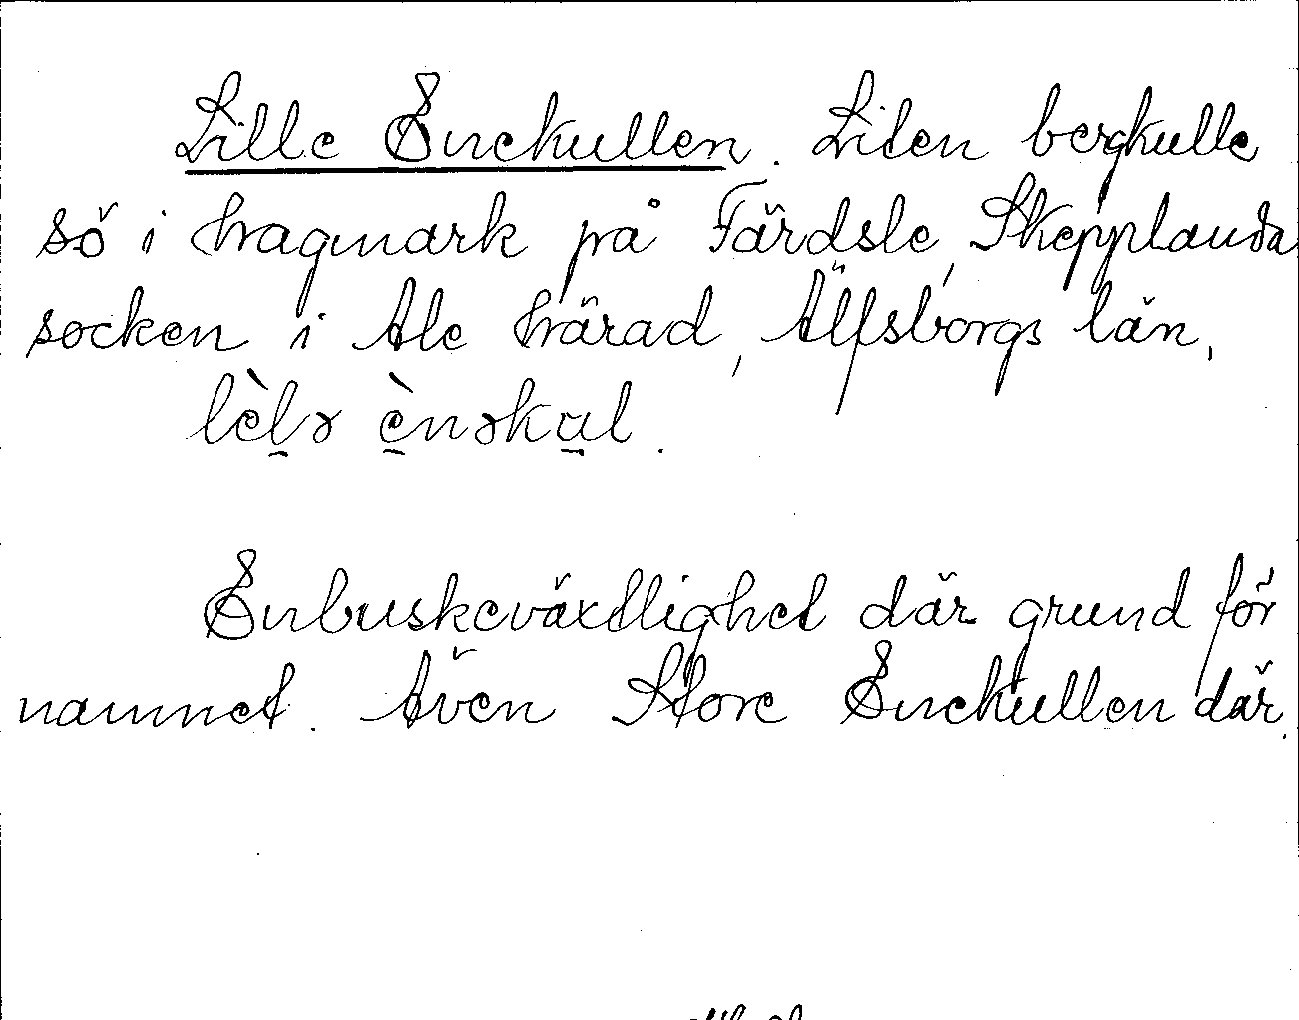 Lille Enekullen. Liten bergkulle
sö i hagmark på Färdsle, Skepplanda
socken i Ale härad, Älfsborgs län,
lèlə ènəkul.
Enbuskeväxtlighet där grund för
namnet. Även Store Enekullen där.